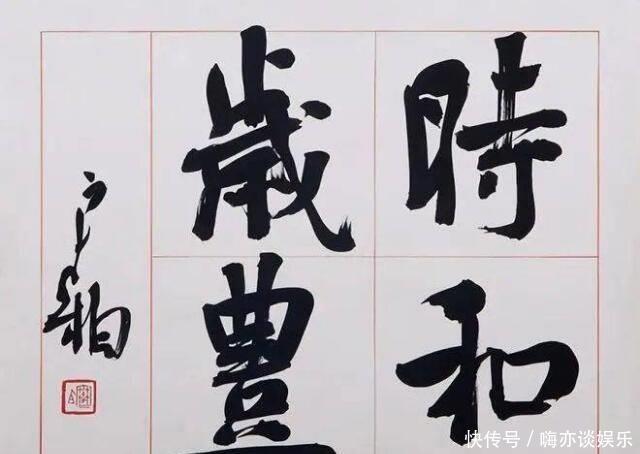 時和
歲豊
快传号 / 嗨亦谈娱乐